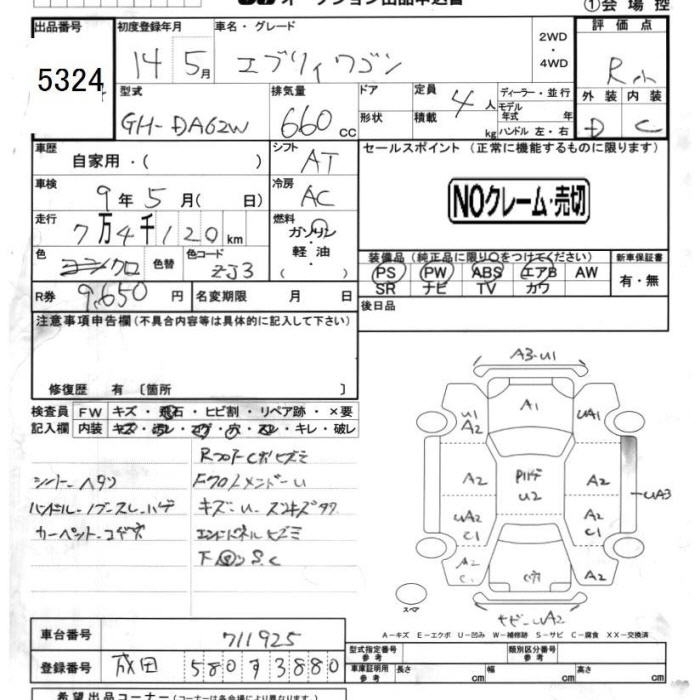 オークション出品申込書
①会場控
出品番号 初度登録年月 車名・グレード 2WD・4WD 評価点
5324 14 5月 エブリィワゴン R
型式 排気量 ドア 定員 ディーラー・並行 外装 内装
GH-DA62W 660cc 形状 積載 4人 kg モデル年式 年 ハンドル 左・右 D C
車歴 自家用・( ) シフト AT セールスポイント (正常に機能するものに限ります)
車検 9年5月( 日) 冷房 AC NOクレーム・売切
走行 7万4千120km 燃料 ガソリン・軽油・( )
色 クロ 色替 色コード ZJ3 装備品(純正品に限り○をつけてください) 新車保証書
PS PW ABS エアB AW 有・無
SR ナビ TV カワ
R券 9,650円 名変期限 月 日 後日品
注意事項申告欄(不具合内容等は具体的に記入して下さい)
修復歴 有〔箇所 〕
検査員記入欄 FW キズ・飛石・ヒビ割・リペア跡・×要
内装 キズ・ヨゴレ・コゲ・穴・スレ・キレ・破レ
シート-ヘタリ
ハンドル・ノブ-スレ・ハゲ
カーペット-コゲ穴
キズ-U-
エンドパネルヒズミ
S.C
A3-U1
A1
U1 A2
UA1
A2
U2
A2
UA3
UA2 C1
A2 C1
A2 C1
A2
スペア
サビ-UA2
A-キズ E-エクボ U-凹み W-補修跡 S-サビ C-腐食 XX-交換済
車台番号 711925
型式指定番号 参考 類別区分番号 参考
登録番号 成田 580 ヲ 3880
車庫証明用 参考 長さ cm 幅 cm 高さ cm
希望出品コーナー(コーナーは各会場により異なります)